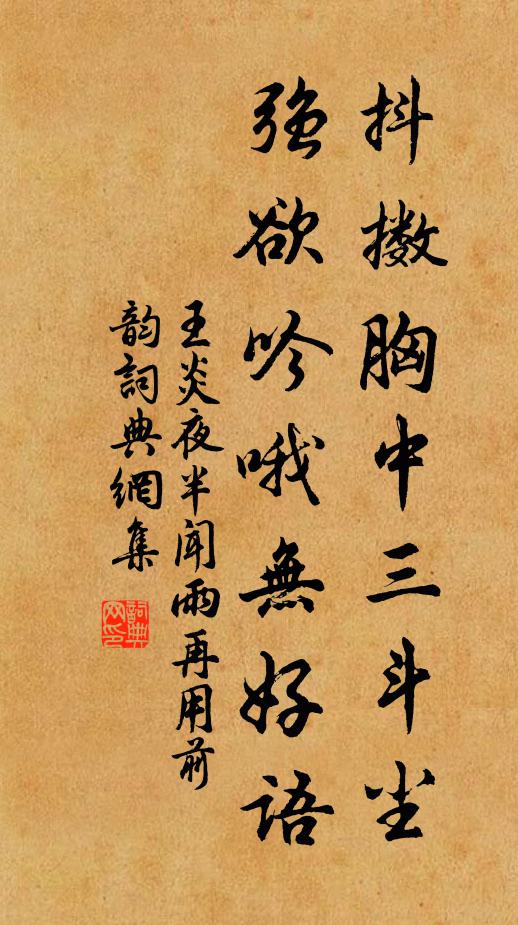 抖擻胸中三斗尘
強欲吟哦無好語
王炎夜半闻雨再用前
韵詞典網集
詞典网印